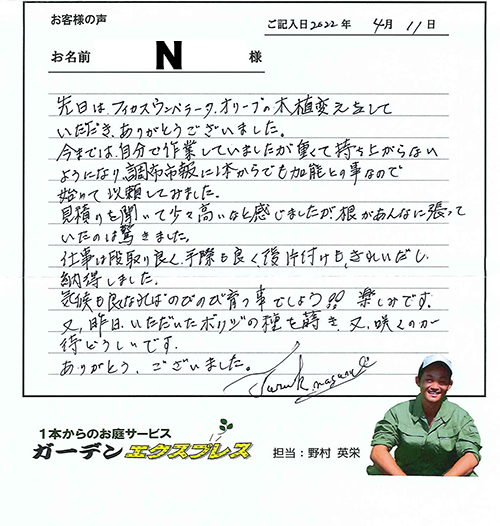 お客様の声
ご記入日 2022年 4月 11日
お名前 N 様
先日は、フィカスウンベラータ、オリーブの木植変えをして
いただき、ありがとうございました。
今までは、自分で作業していましたが重くて持ち上がらない
ようになり、調布市報に1本からでも可能との事なので
始めて依頼してみました。
見積りを聞いて少々高いなと感じましたが、根があんなに張って
いたのは驚きました。
仕事は段取り良く、手際も良く、後片付けも、きれいだし
納得しました。
気候も良くなればのびのび育つ事でしょう!! 楽しみです。
又、昨日、いただいたボリジの種を蒔き、又、咲くのが
待どうしいです。
ありがとう、ございました。
1本からのお庭サービス
ガーデンエクスプレス
担当：野村 英栄